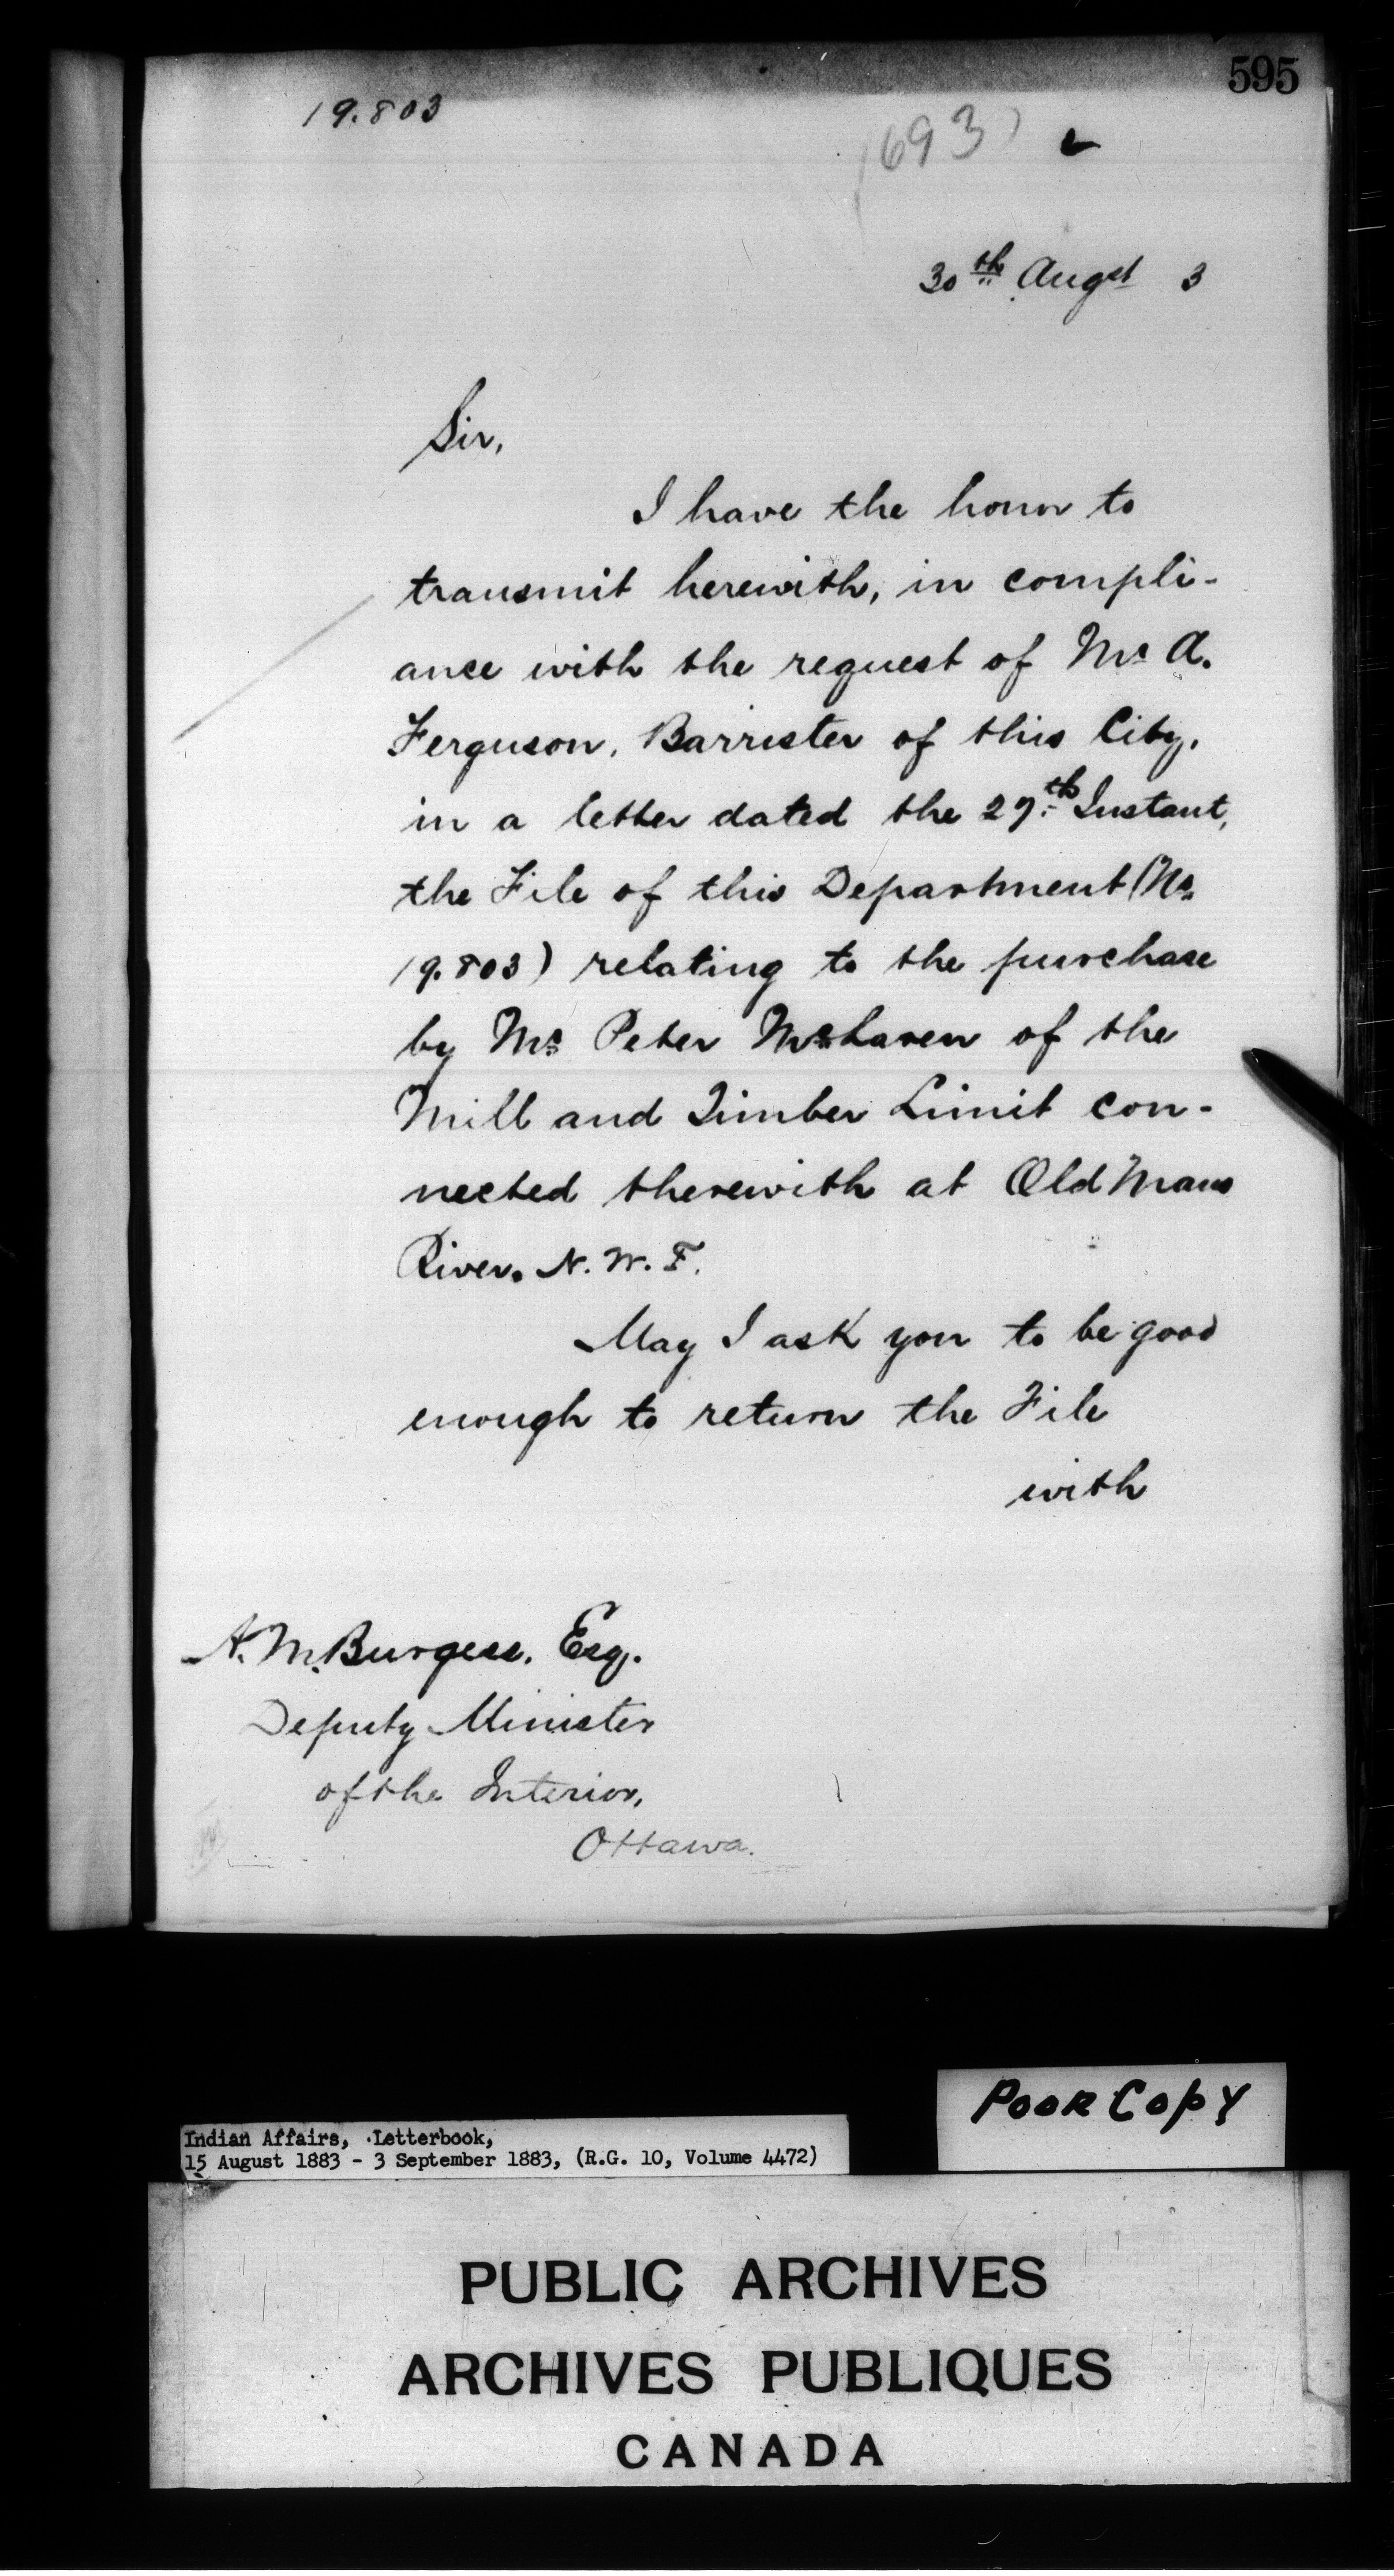 595
19.803
(693)
30th Augst 3
Sir,
I have the honor to
transmit herewith, in compli-
ance with the request of Mr A.
Ferguson, Barrister of this City,
in a letter dated the 27th Instant,
the File of this Department (No.
19.803) relating to the purchase
by Mr Peter McLaren of the
Mill and Timber Limit con-
nected therewith at Old Mans
River. N. W. T.
May I ask you to be good
enough to return the File
with
A. M. Burgess, Esq.
Deputy Minister
of the Interior,
Ottawa.
POOR COPY
Indian Affairs, Letterbook,
15 August 1883 - 3 September 1883, (R.G. 10, Volume 4472)
PUBLIC ARCHIVES
ARCHIVES PUBLIQUES
CANADA